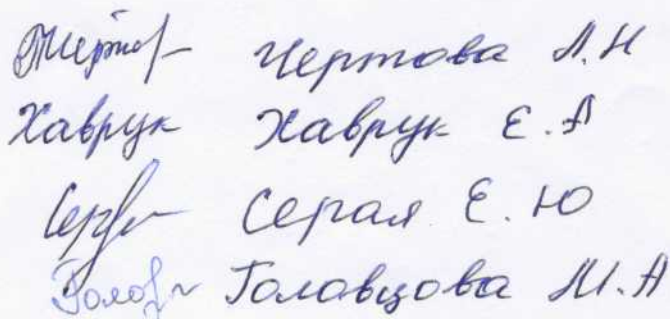 Чертова Л.Н
Хаврук Хаврук Е.А
Серая Е.Ю
Головцова М.А